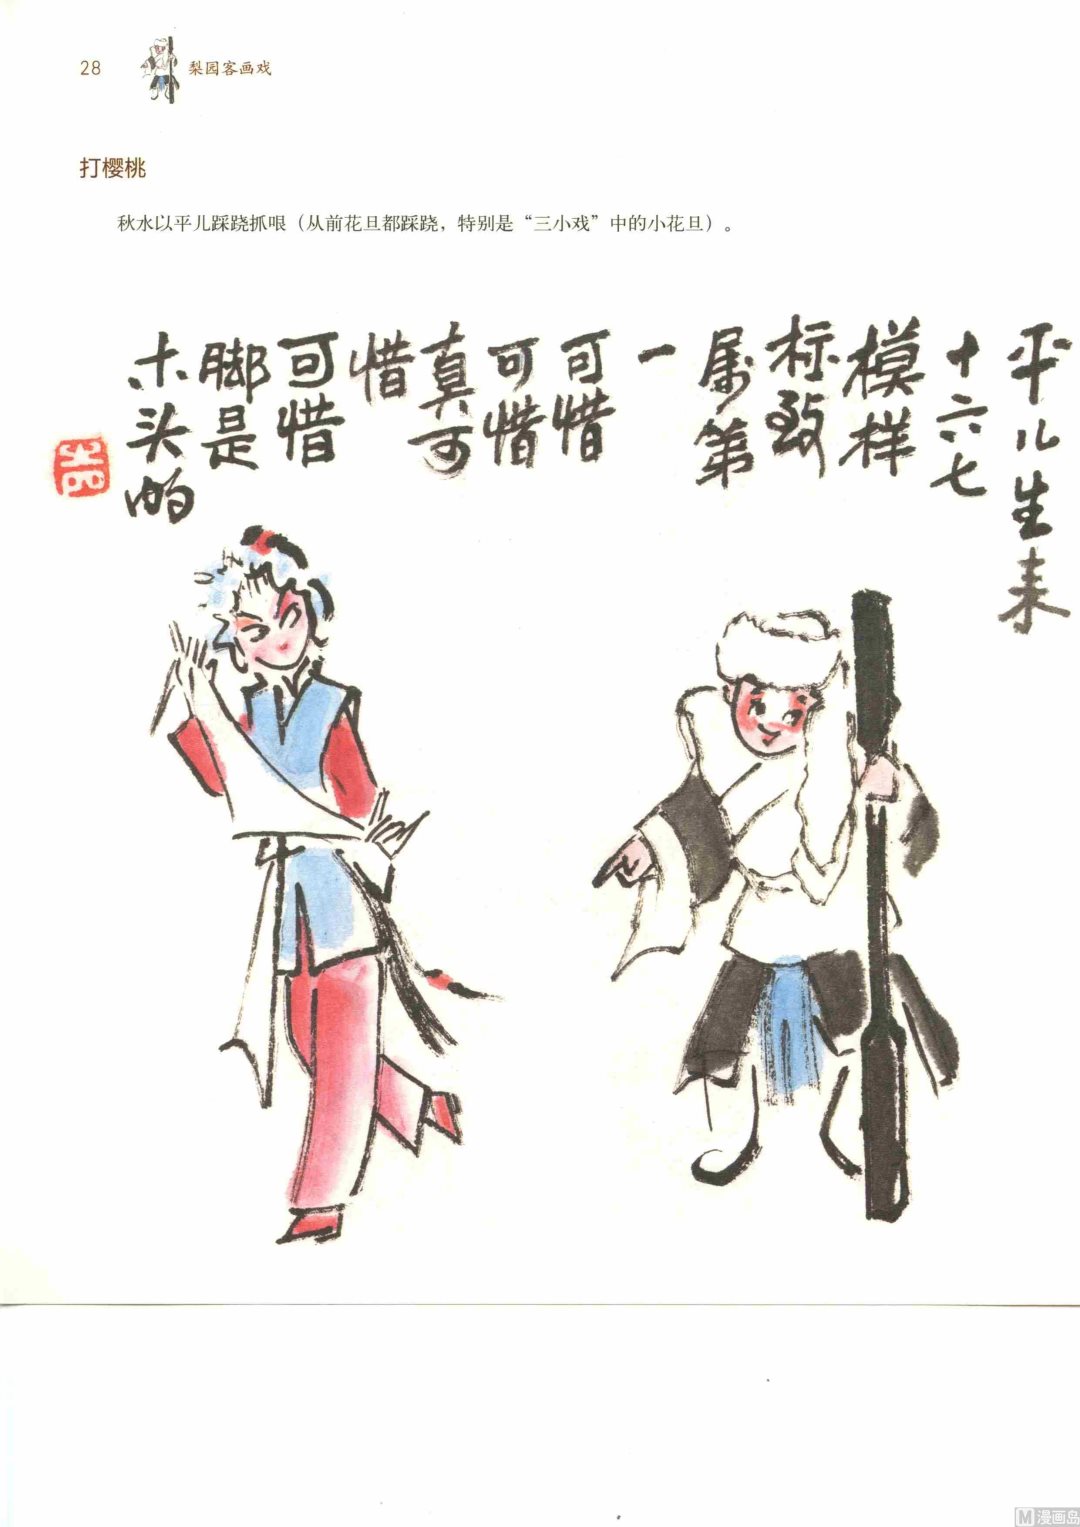 28
梨园客画戏
打樱桃
秋水以平儿踩跷抓哏（从前花旦都踩跷，特别是“三小戏”中的小花旦）。
平儿生来
十六七
模样
标致
属第
一
可惜
可惜
真可
惜
可惜
脚是
木头的
漫画岛